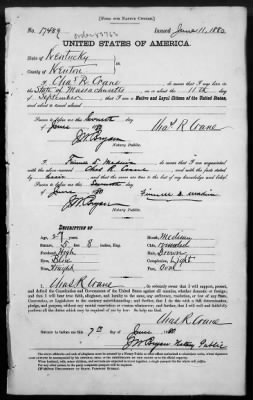 [FORM FOR NATIVE CITIZEN.]
No. 17489
Issued June 11, 1880
UNITED STATES OF AMERICA.
State of Kentucky
County of Kenton
I, Chas R. Crane, do swear that I was born in
State of Massachusetts on or about the 11th day of
September that I am a Native and Loyal Citizen of the United States,
and about to travel abroad
Sworn to before me this Seventh day
of June 1880
Chas R Crane
J W Bryan
Notary Public.
I, do swear that I am acquainted
with the above-named Chas R. Crane and with the facts
to the best of my knowledge and belief.
Sworn to before me this Seventh day
of June 1880
J W Bryan
Notary Public.
DESCRIPTION OF
Age: 29 years
Mouth: Medium
Stature: 5 feet 8 inches, Eng.
Chin: rounded
Forehead: High
Hair: Brown
Eyes: Blue
Complexion: Light
Nose: Straight
Face: Oval
I, Chas R. Crane, do solemnly swear that I will support, protect,
and defend the Constitution and Government of the United States against all enemies, whether domestic or foreign;
and that I will bear true faith, allegiance, and loyalty to the same, any ordinance, resolution, or law of any State,
Convention, or Legislature to the contrary notwithstanding; and further, that I do this with a full determination,
pledge, and purpose, without any mental reservation or evasion whatsoever; and further, that I will well and faithfully
perform all the duties which may be required of me by law: So help me God.
Chas R. Crane
Sworn to before me this 7th day June 1880
J W Bryan Notary Public